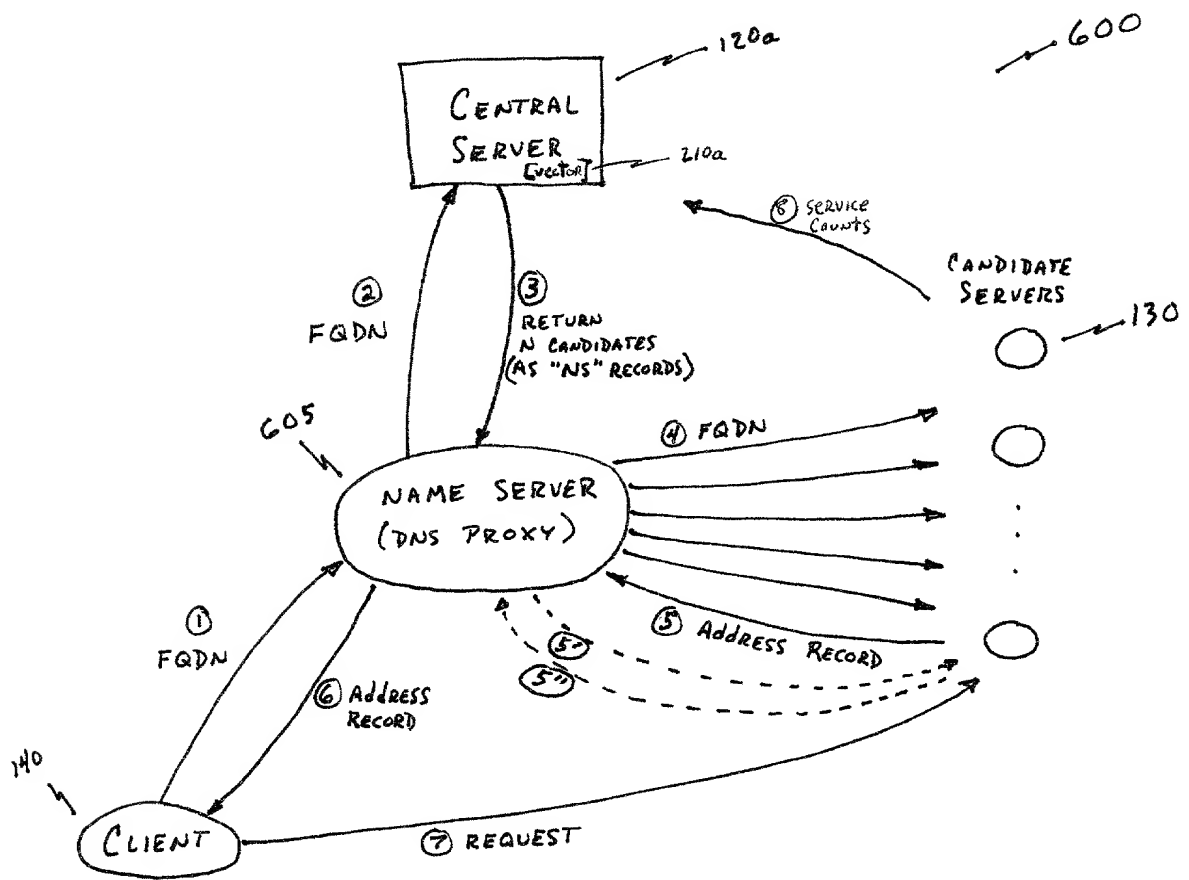 600
120a
CENTRAL
SERVER
[VECTOR]
210a
⑧ SERVICE
COUNTS
CANDIDATE
SERVERS
130
②
FQDN
③
RETURN
N CANDIDATES
(AS "NS" RECORDS)
605
④ FQDN
NAME SERVER
(DNS PROXY)
①
FQDN
⑤ ADDRESS RECORD
5'
5"
⑥ ADDRESS
RECORD
140
CLIENT
⑦ REQUEST